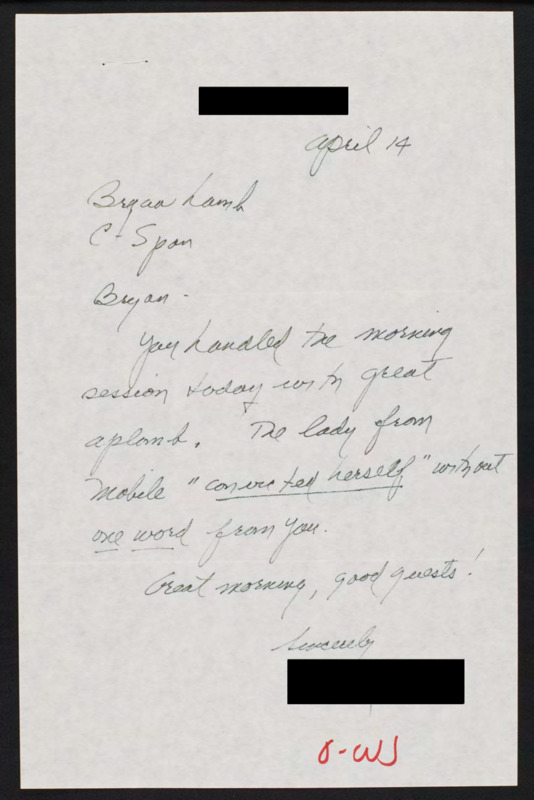 April 14
Bryan Lamb
C-Span
Bryan -
You handled the morning
session today with great
aplomb. The lady from
Mobile "convicted herself" without
one word from you.
Great morning, good guests!
Sincerely
O-WJ